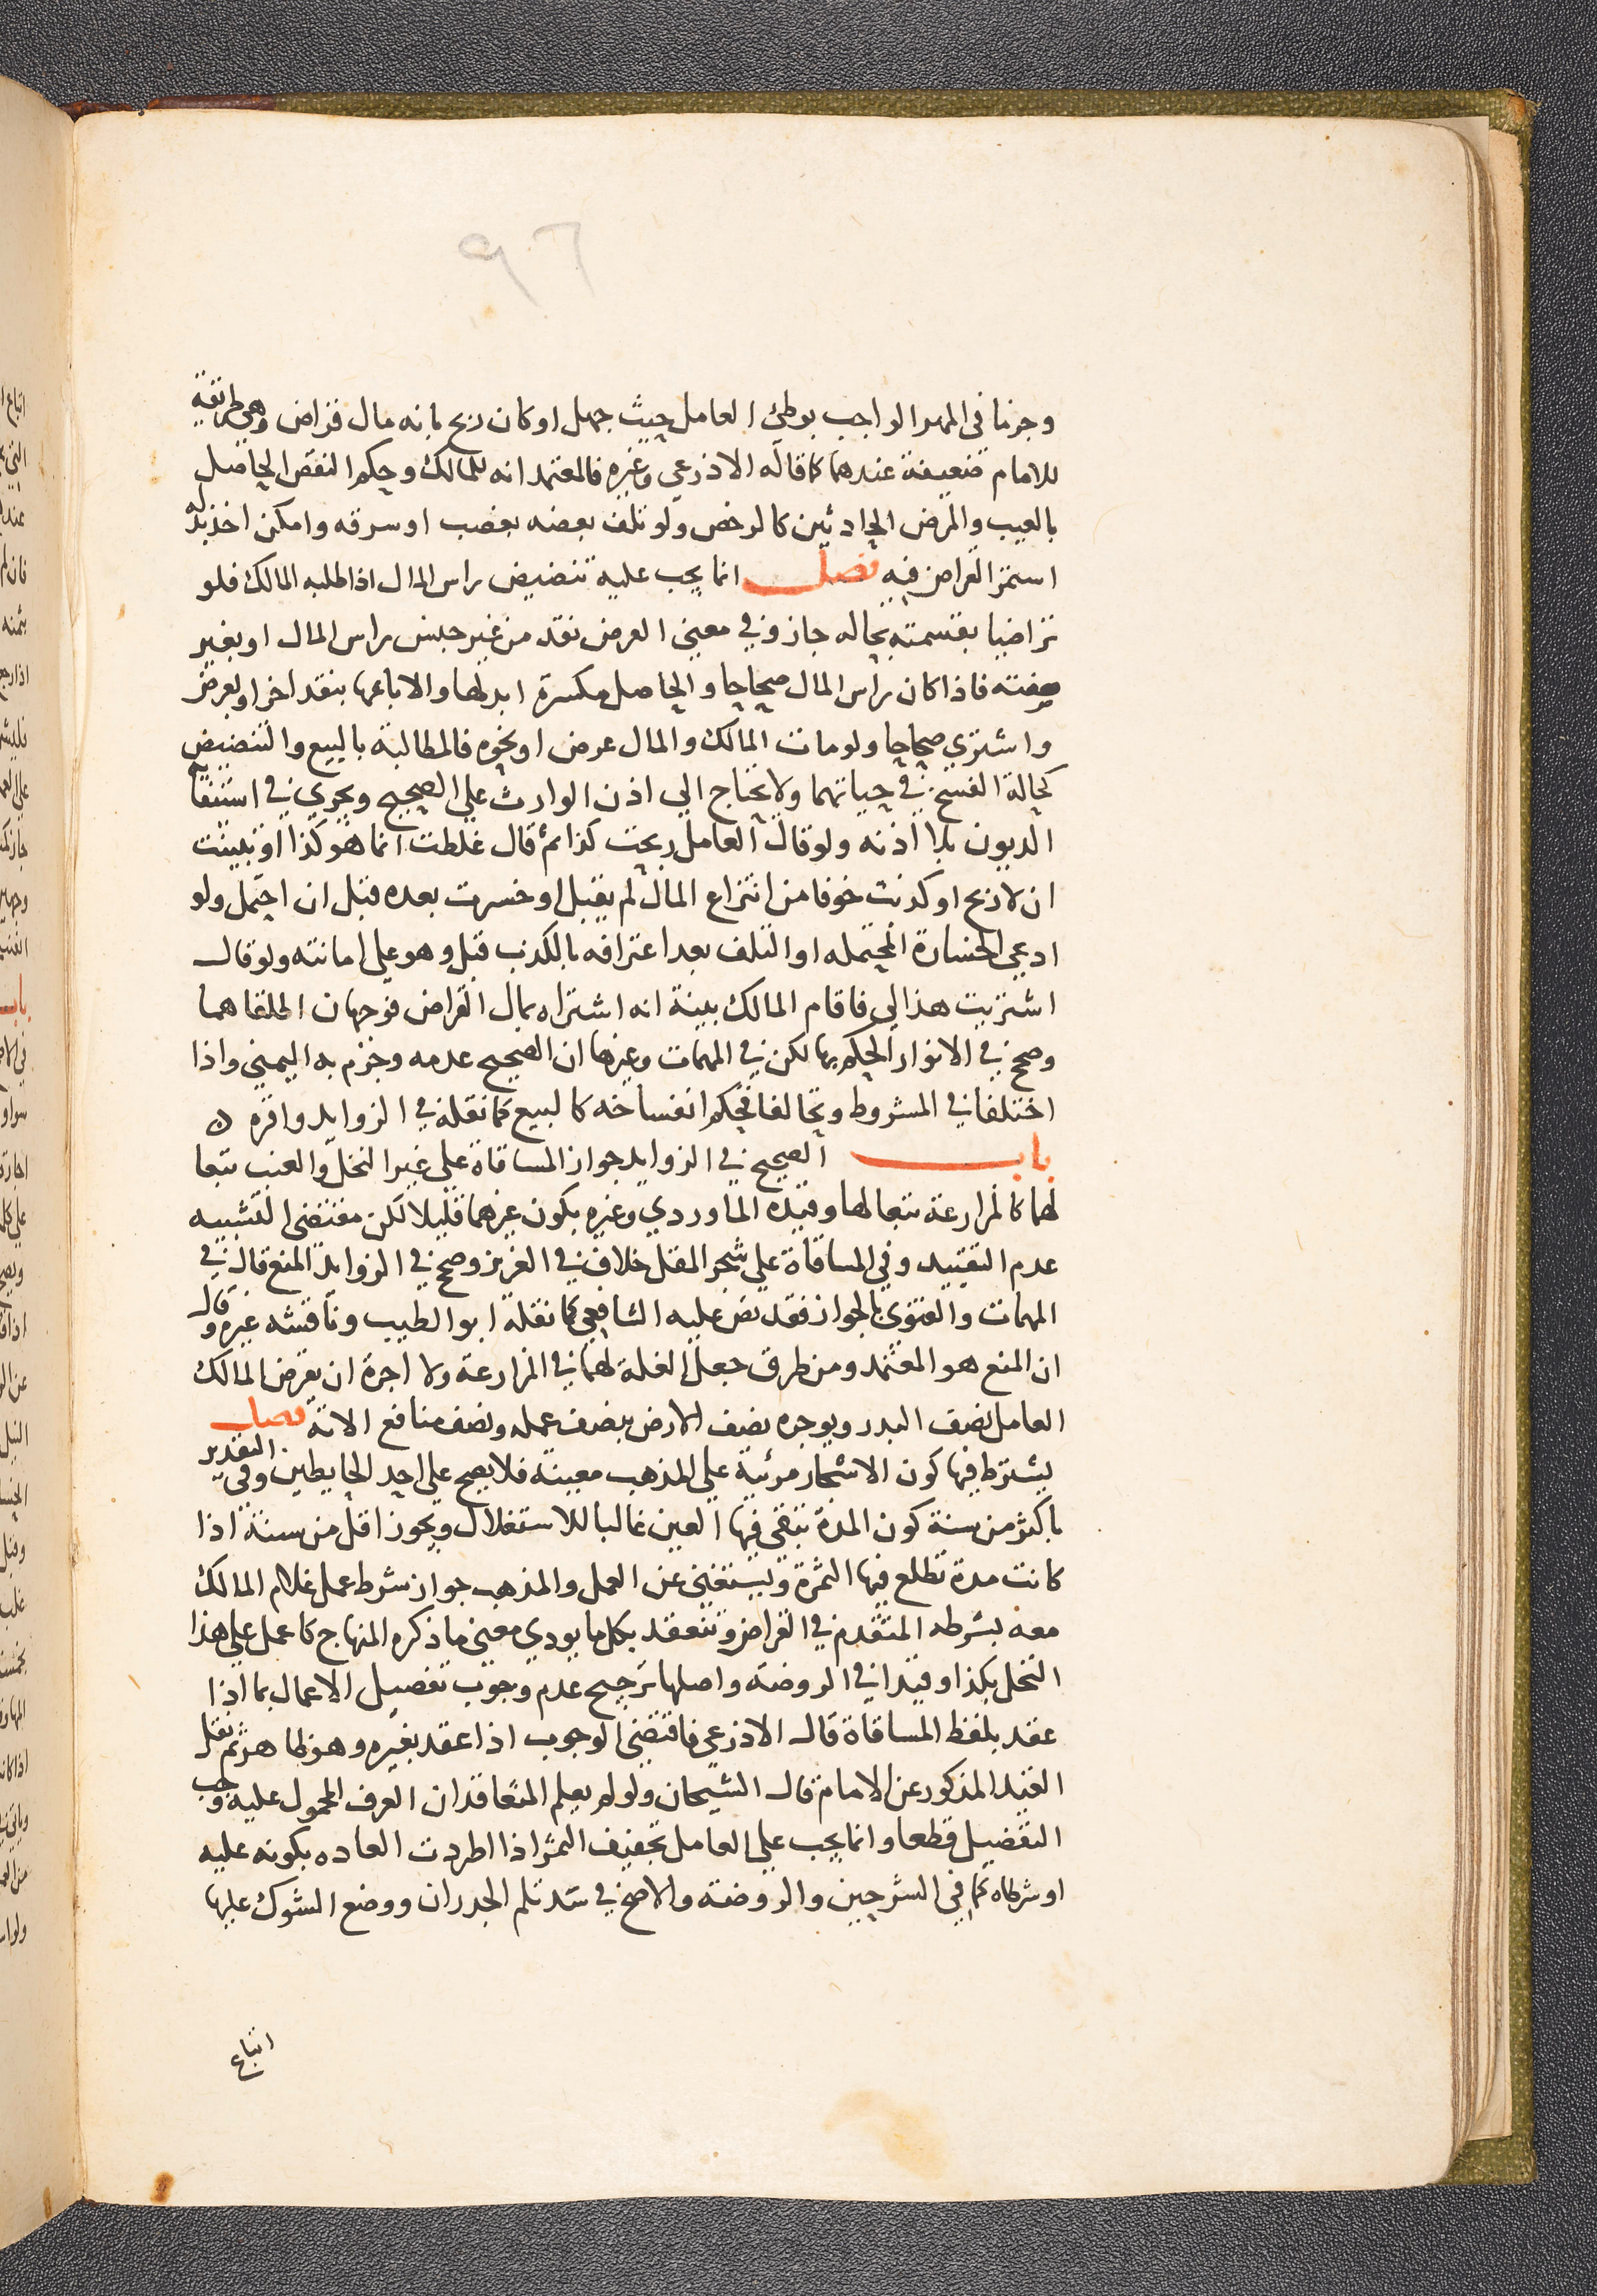 ٩٦
وجزما في المهر الواجب بوطئ العامل حيث جهل او كان ربح بانه مال قراض وهي طريقة
للامام ضعيفة عندهما كما قاله الاذرعي وغيره فالمعتمد انه للمالك وحكم النقص الحاصل
بالعيب والمرض الحادثين كالرخص ولو تلف بعضه بغصب او سرقه وامكن اخذ بدله
استمر القراض فيه فصل انما يجب عليه تنضيض راس المال اذا طلبه المالك فلو
تراضيا بقسمته بحاله جاز وفي معنى العرض نقد من غير جنس راس المال او بغير
صفته فاذا كان راس المال صحاحا والحاصل مكسرة ابدلها والا باعها بنقد اخر او بعرض
واشتري صحاحا ولو مات المالك والمال عرض او نحوه فالمطالبة بالبيع والتنضيض
كحالة الفسخ في حياتهما ولا يحتاج الي اذن الوارث علي الصحيح ويجري في استيفا
الديون بلا اذنه ولو قال العامل ربحت كذا ثم قال غلطت انما هو كذا او تبينت
ان لا ربح او كذبت خوفا من انتزاع المال لم يقبل او خسرت بعده قبل ان احتمل ولو
ادعي الخسارة المحتمله او التلف بعد اعترافه بالكذب قبل وهو علي امانته ولو قال
اشتريت هذا لي فاقام المالك بينة انه اشتراه بمال القراض فوجهان اطلقاهما
وصحح في الانوار الحكم بها لكن في المهمات وغيرها ان الصحيح عدمه وجزم به اليمني واذا
اختلفا في المشروط وتحالفا فحكم انفساخه كالبيع كما نقله في الزوايد واقره ه
باب الصحيح في الزوايد جواز المساقاة علي غير النخل والعنب تبعا
لهما كالمزارعة تبعا لها وقيده الماوردي وغيره بكون غيرهما قليلا لكن مقتضي التشبيه
عدم التقييد وفي المساقاة علي شجر المقل خلاف في العزيز وصحح في الزوايد المنع قال في
المهمات والفتوي بالجواز فقد نص عليه الشافعي كما نقله ابو الطيب وناقشه غيره وقال
ان المنع هو المعتمد ومن طرق جعل الغلة لهما في المزارعة ولا اجرة ان يقرض المالك
العامل نصف البدر ويوجره نصف الارض بنصف عمله ونصف منافع الاته فصل
يشترط فيها كون الاشجار مرئية علي المذهب معينة فلا يصح علي احد الحايطين وفي التقدير
باكثر من سنة كون المدة تبقي فيها العين غالبا للاستغلال ويجوز اقل من سنة اذا
كانت مدة تطلع فيها الثمرة وتستغني عن العمل والمذهب جواز شرط عمل غلام المالك
معه بشرطه المتقدم في القراض وتنعقد بكل ما يودي معني ما ذكره المنهاج كاعمل علي هذا
النخل بكذا وقيدا في الروضة واصلها ترجيح عدم وجوب تفصيل الاعمال بما اذا
عقد بلفظ المساقاة قال الاذرعي فاقتضي الوجوب اذا عقد بغيره وهو ظاهر ثم نقل
القيد المذكور عن الامام قال الشيخان ولو لم يعلم المتعاقدان العرف المحمول عليه وجب
التفصيل قطعا وانما يجب علي العامل تجفيف الثمر اذا اطردت العاده بكونه عليه
او شرطاه كما في الشرحين والروضة والاصح في سد ثلم الجدران ووضع الشوك عليها
اتباع